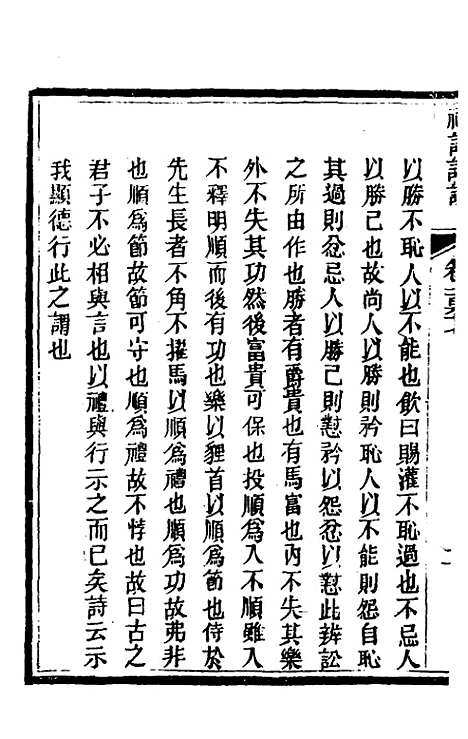 以勝不恥人以不能也飲曰賜灌不恥過也不忌人
以勝己也故尚人以勝則矜恥人以不能則怨自恥
其過則忿忌人以勝己則懟矜以怨忿以懟此辨訟
之所由作也勝者有爵貴也有馬富也內不失其樂
外不失其功然後富貴可保也投順爲入不順雖入
不釋明順而後有功也樂以貍首以順爲節也侍於
先生長者不角不擢馬以順爲禮也順爲功故弗非
也順爲節故節可守也順爲禮故不悖也故曰古之
君子不必相與言也以禮與行示之而已矣詩云示
我顯德行此之謂也